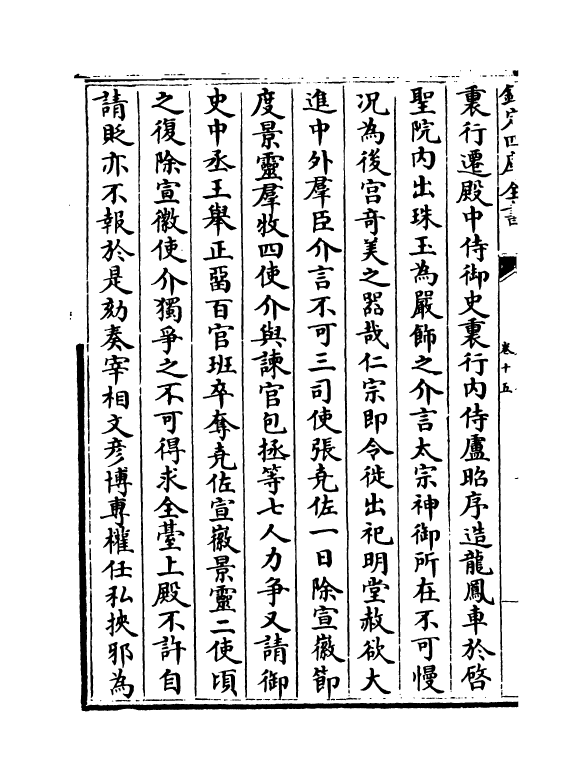 欽定四庫全書
卷十五
裏行遷殿中侍御史裏行内侍盧昭序造龍鳳車於啓
聖院内出珠玉為嚴飾之介言太宗神御所在不可慢
况為後宫竒美之器哉仁宗即令徙出祀明堂赦欲大
進中外羣臣介言不可三司使張堯佐一日除宣徽節
度景靈羣牧四使介與諫官包拯等七人力争又請御
史中丞王舉正畱百官班卒奪堯佐宣徽景靈二使頃
之復除宣徽使介獨爭之不可得求全臺上殿不許自
請貶亦不報於是劾奏宰相文彥博專權任私挾邪為